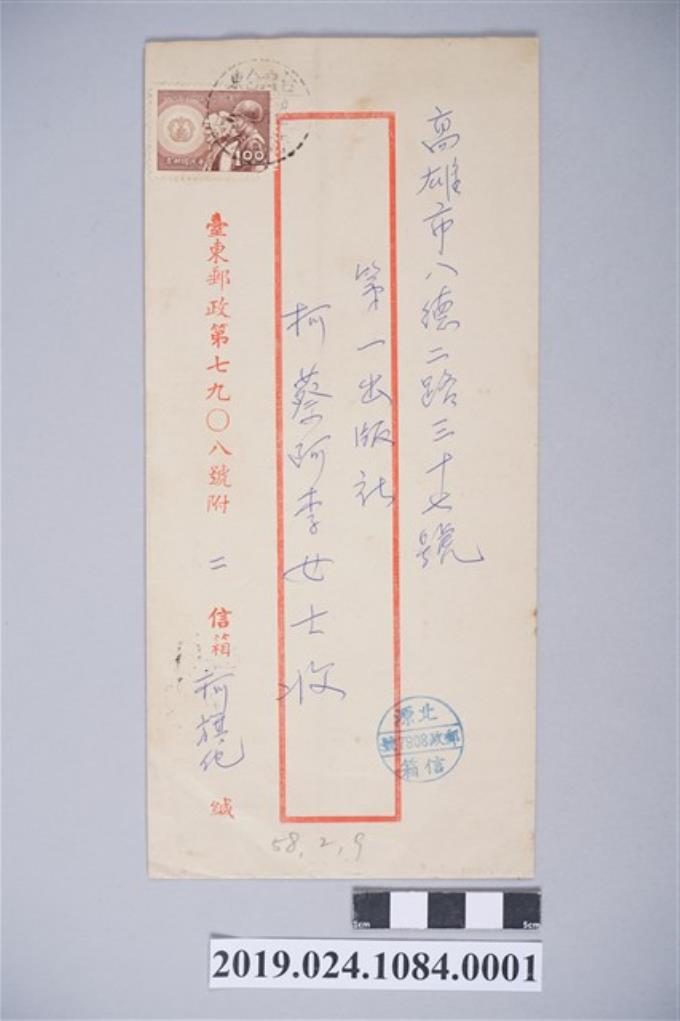 高雄市八德二路三十七號
第一出版社
柯蔡阿李女士收
臺東郵政第七九〇八號附 二 信箱 柯旗化 緘
1.00
北源
郵政7908號
信箱
58.2.9
5cm 5cm
2019.024.1084.0001